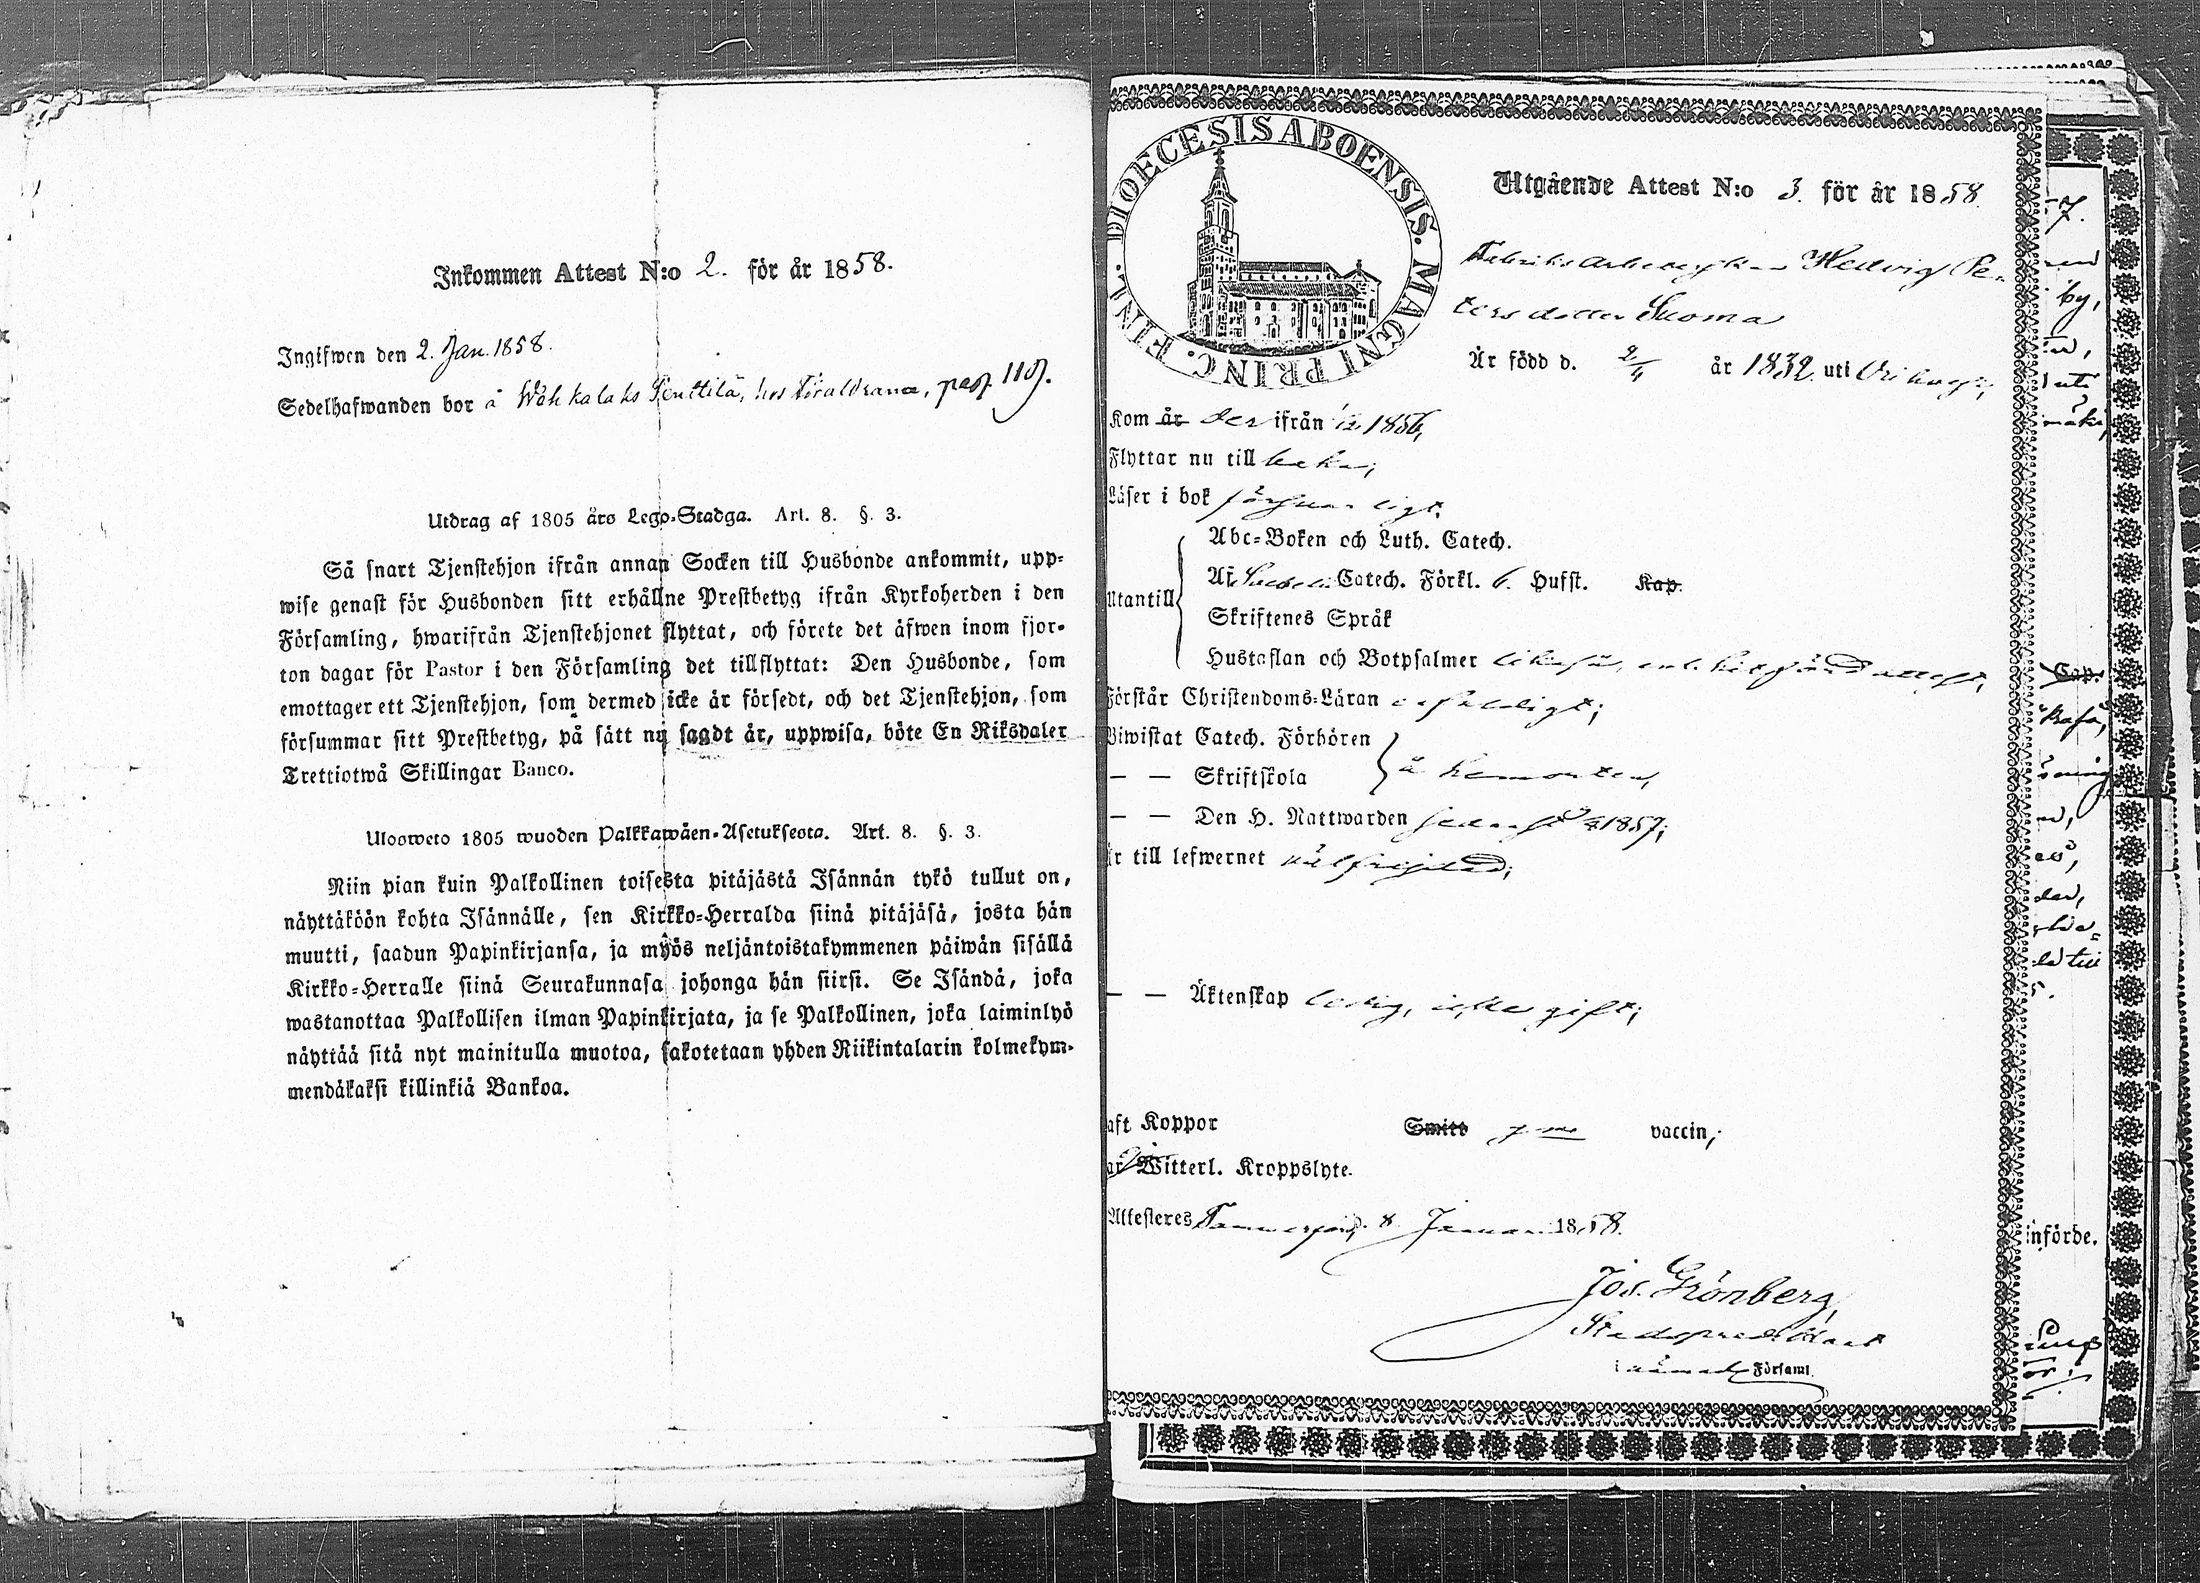 Inkommen Attest N:o 2. för år 1858.
Ingifwen den 2. Jan. 1858.
Sedelhafwanden bor å Wahkalaks Penttilä, hos föräldrarna, pag. 119.
Utdrag af 1805 års Lego-Stadga. Art. 8. §. 3.
Så snart Tjenstehjon ifrån annan Socken till Husbonde ankommit, upp-
wise genast för Husbonden sitt erhållne Prestbetyg ifrån Kyrkoherden i den
Församling, hwarifrån Tjenstehjonet flyttat, och förete det äfwen inom fjor-
ton dagar för Pastor i den Församling det tillflyttat: Den Husbonde, som
emottager ett Tjenstehjon, som dermed icke är försedt, och det Tjenstehjon, som
försummar sitt Prestbetyg, på sätt nu sagdt är, uppwisa, böte En Riksdaler
Trettiotwå Skillingar Banco.
Ulosweto 1805 wuoden Palkkawäen-Asetuksesta. Art. 8. §. 3.
Niin pian kuin Palkollinen toisesta pitäjästä Isännän tykö tullut on,
näyttäköön kohta Isännälle, sen Kirkko-Herralda siinä pitäjäsä, josta hän
muutti, saadun Papinkirjansa, ja myös neljäntoistakymmenen päiwän sisällä
Kirkko-Herralle siinä Seurakunnasa johonga hän siirsi. Se Isändä, joka
wastanottaa Palkollisen ilman Papinkirjata, ja se Palkollinen, joka laiminlyö
näyttää sitä nyt mainitulla muotoa, sakotetaan yhden Riikintalarin kolmekym-
mendäkaksi killinkiä Bankoa.
DIOECESIS ABOENSIS. MAGNI PRINC. FINL.
Utgående Attest N:o 3. för år 1858.
Fabriks arbeterskan Hedvig Pe-
tersdotter Suoma
Är född d. 2/4 år 1832 uti
Kom är der ifrån 1856,
Flyttar nu till baka;
Läser i bok försvarligt.
Utantill
Abc-Boken och Luth. Catech.
Af Catech. Förkl. 6. Hufst. Kap.
Skriftenes Språk
Hustaflan och Botpsalmer likaså, enl. hitförd attest;
Förstår Christendoms-Läran enfaldigt;
Biwistat Catech. Förhören
— — Skriftskola
å hemorten,
— — Den H. Nattwarden sednast 1857;
är till lefwernet välfrejdad;
— — Äktenskap ledig, icke gift;
aft Koppor Smitt genom vaccin;
ar Witterl. Kroppslyte.
Attesteres Tammerfors, 8 Januari 1858.
Jos. Grönberg,
Stadspredikant
Församl.
7.
by,
uti
mäki,
Cap.
dar,
införde.